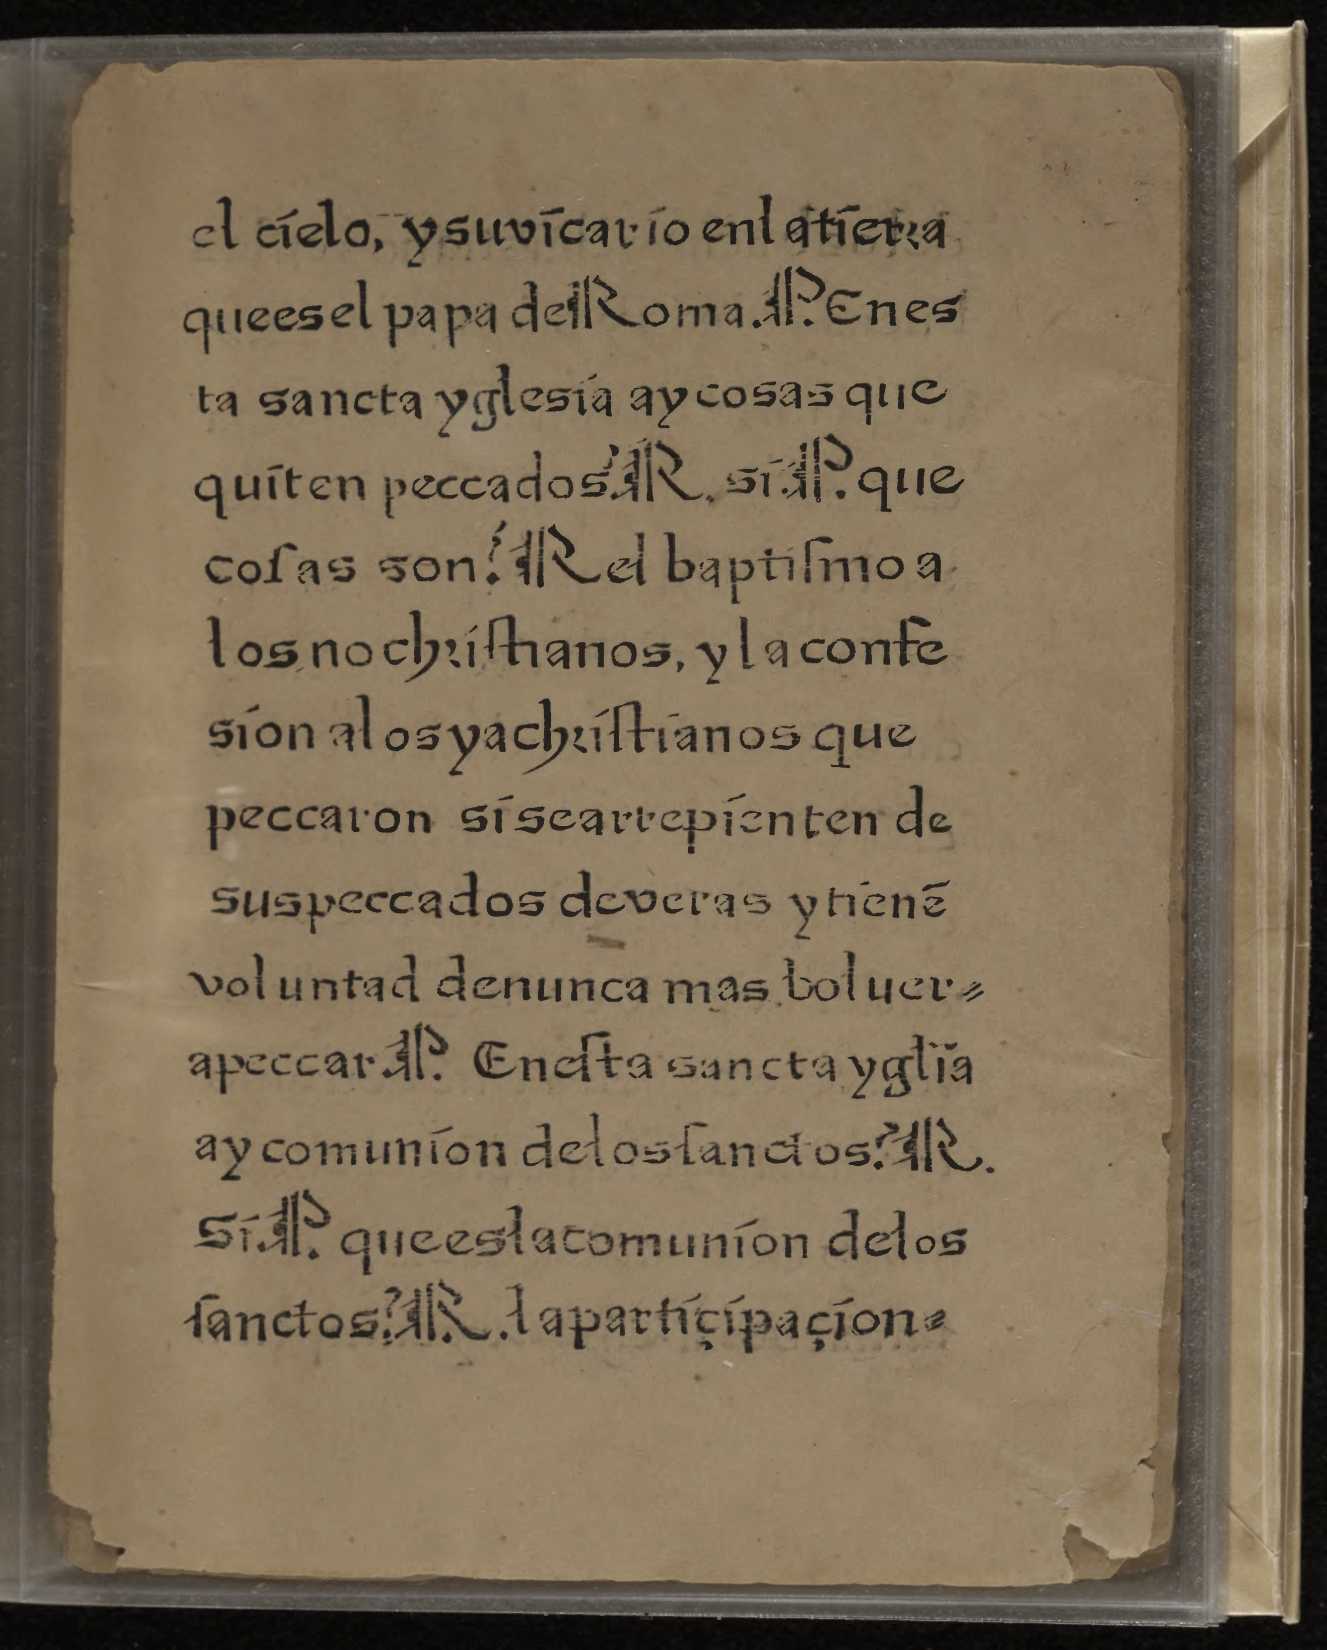 el cíelo, y su vícarío en la tíerra
que es el papa de Roma. P. En es
ta sancta yglesía ay cosas que
quíten peccados? R. sí P. que
coſas son? R el baptiſmo a
los no chriſtianos, y la confe
síon a los ya chríſtíanos que
peccaron sí se arrepíenten de
sus peccados de veras y tíenē
voluntad de nunca mas boluer⸗
a peccar P. En eſta sancta yglīa
ay comuníon de los ſanctos? R.
Sí P. que es la comuníon de los
ſanctos? R. la partíçípaçíon⸗